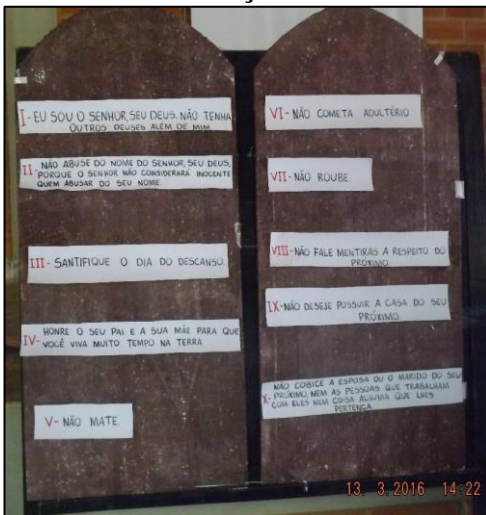 I - EU SOU O SENHOR, SEU DEUS. NÃO TENHA
OUTROS DEUSES ALÉM DE MIM.
II - NÃO ABUSE DO NOME DO SENHOR, SEU DEUS,
PORQUE O SENHOR NÃO CONSIDERARÁ INOCENTE
QUEM ABUSAR DO SEU NOME.
III - SANTIFIQUE O DIA DO DESCANSO.
IV - HONRE O SEU PAI E A SUA MÃE PARA QUE
VOCÊ VIVA MUITO TEMPO NA TERRA.
V - NÃO MATE.
VI - NÃO COMETA ADULTÉRIO
VII - NÃO ROUBE.
VIII - NÃO FALE MENTIRAS A RESPEITO DO
PRÓXIMO.
IX - NÃO DESEJE POSSUIR A CASA DO SEU
PRÓXIMO.
NÃO COBICE A ESPOSA OU O MARIDO DO SEU
X - PRÓXIMO, NEM AS PESSOAS QUE TRABALHAM
COM ELES NEM COISA ALGUMA QUE LHES
PERTENÇA.
13. 3.2016 14:22